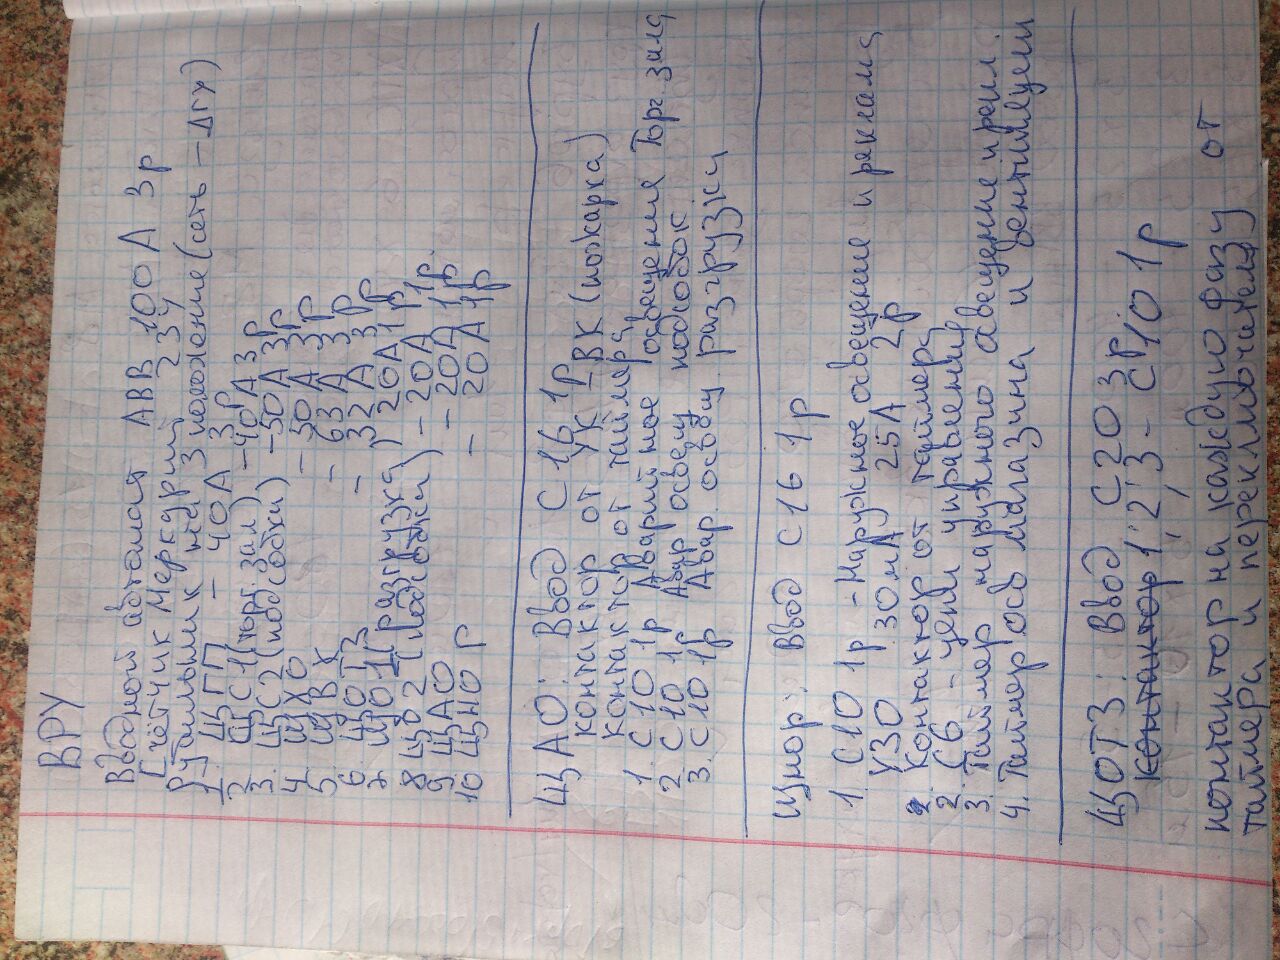 ВРУ
Вводной автомат АВВ 100 А 3р
Счётчик Меркурий 234
Рубильник на 3 положение (сеть – ДГУ)
1. ЩПП – 40А 3р
2. ЩС1 (торг. зал) – 40А 3р
3. ЩС2 (подсобки) – 50А 3р
4. ЩХО – 50А 3р
5. ЩВК – 63А 3р
6. ЩОТЗ – 32А 3р
7 ЩО1 (разгрузка) 20А 1р
8 ЩО2 (подсобки) – 20А 1р.
9 ЩАО – 20А 1р
10 ЩНО Р – 20А 1р
ЩАО: Ввод С16 1р
контактор от УК-ВК (пожарка)
контактор от таймера
1. С10 1р Аварийное освещение Торг. зала
2 С10 1р Авар освещ подсобок
3. С10 1р Авар. освещ. разгрузки
Щнор: Ввод С16 1р
1. С10 1р – Наружное освещение и реклама
УЗО 30мА 25А 2р
Контактор от таймера
2. С6 – цепи управления
3. Таймер наружного освещение и рекл.
4. Таймер осв магазина и вентиляции
ЩОТЗ: Ввод С20 3р
контактор 1, 2, 3 – С10 1р
контактор на каждую фазу от
таймера и переключателя